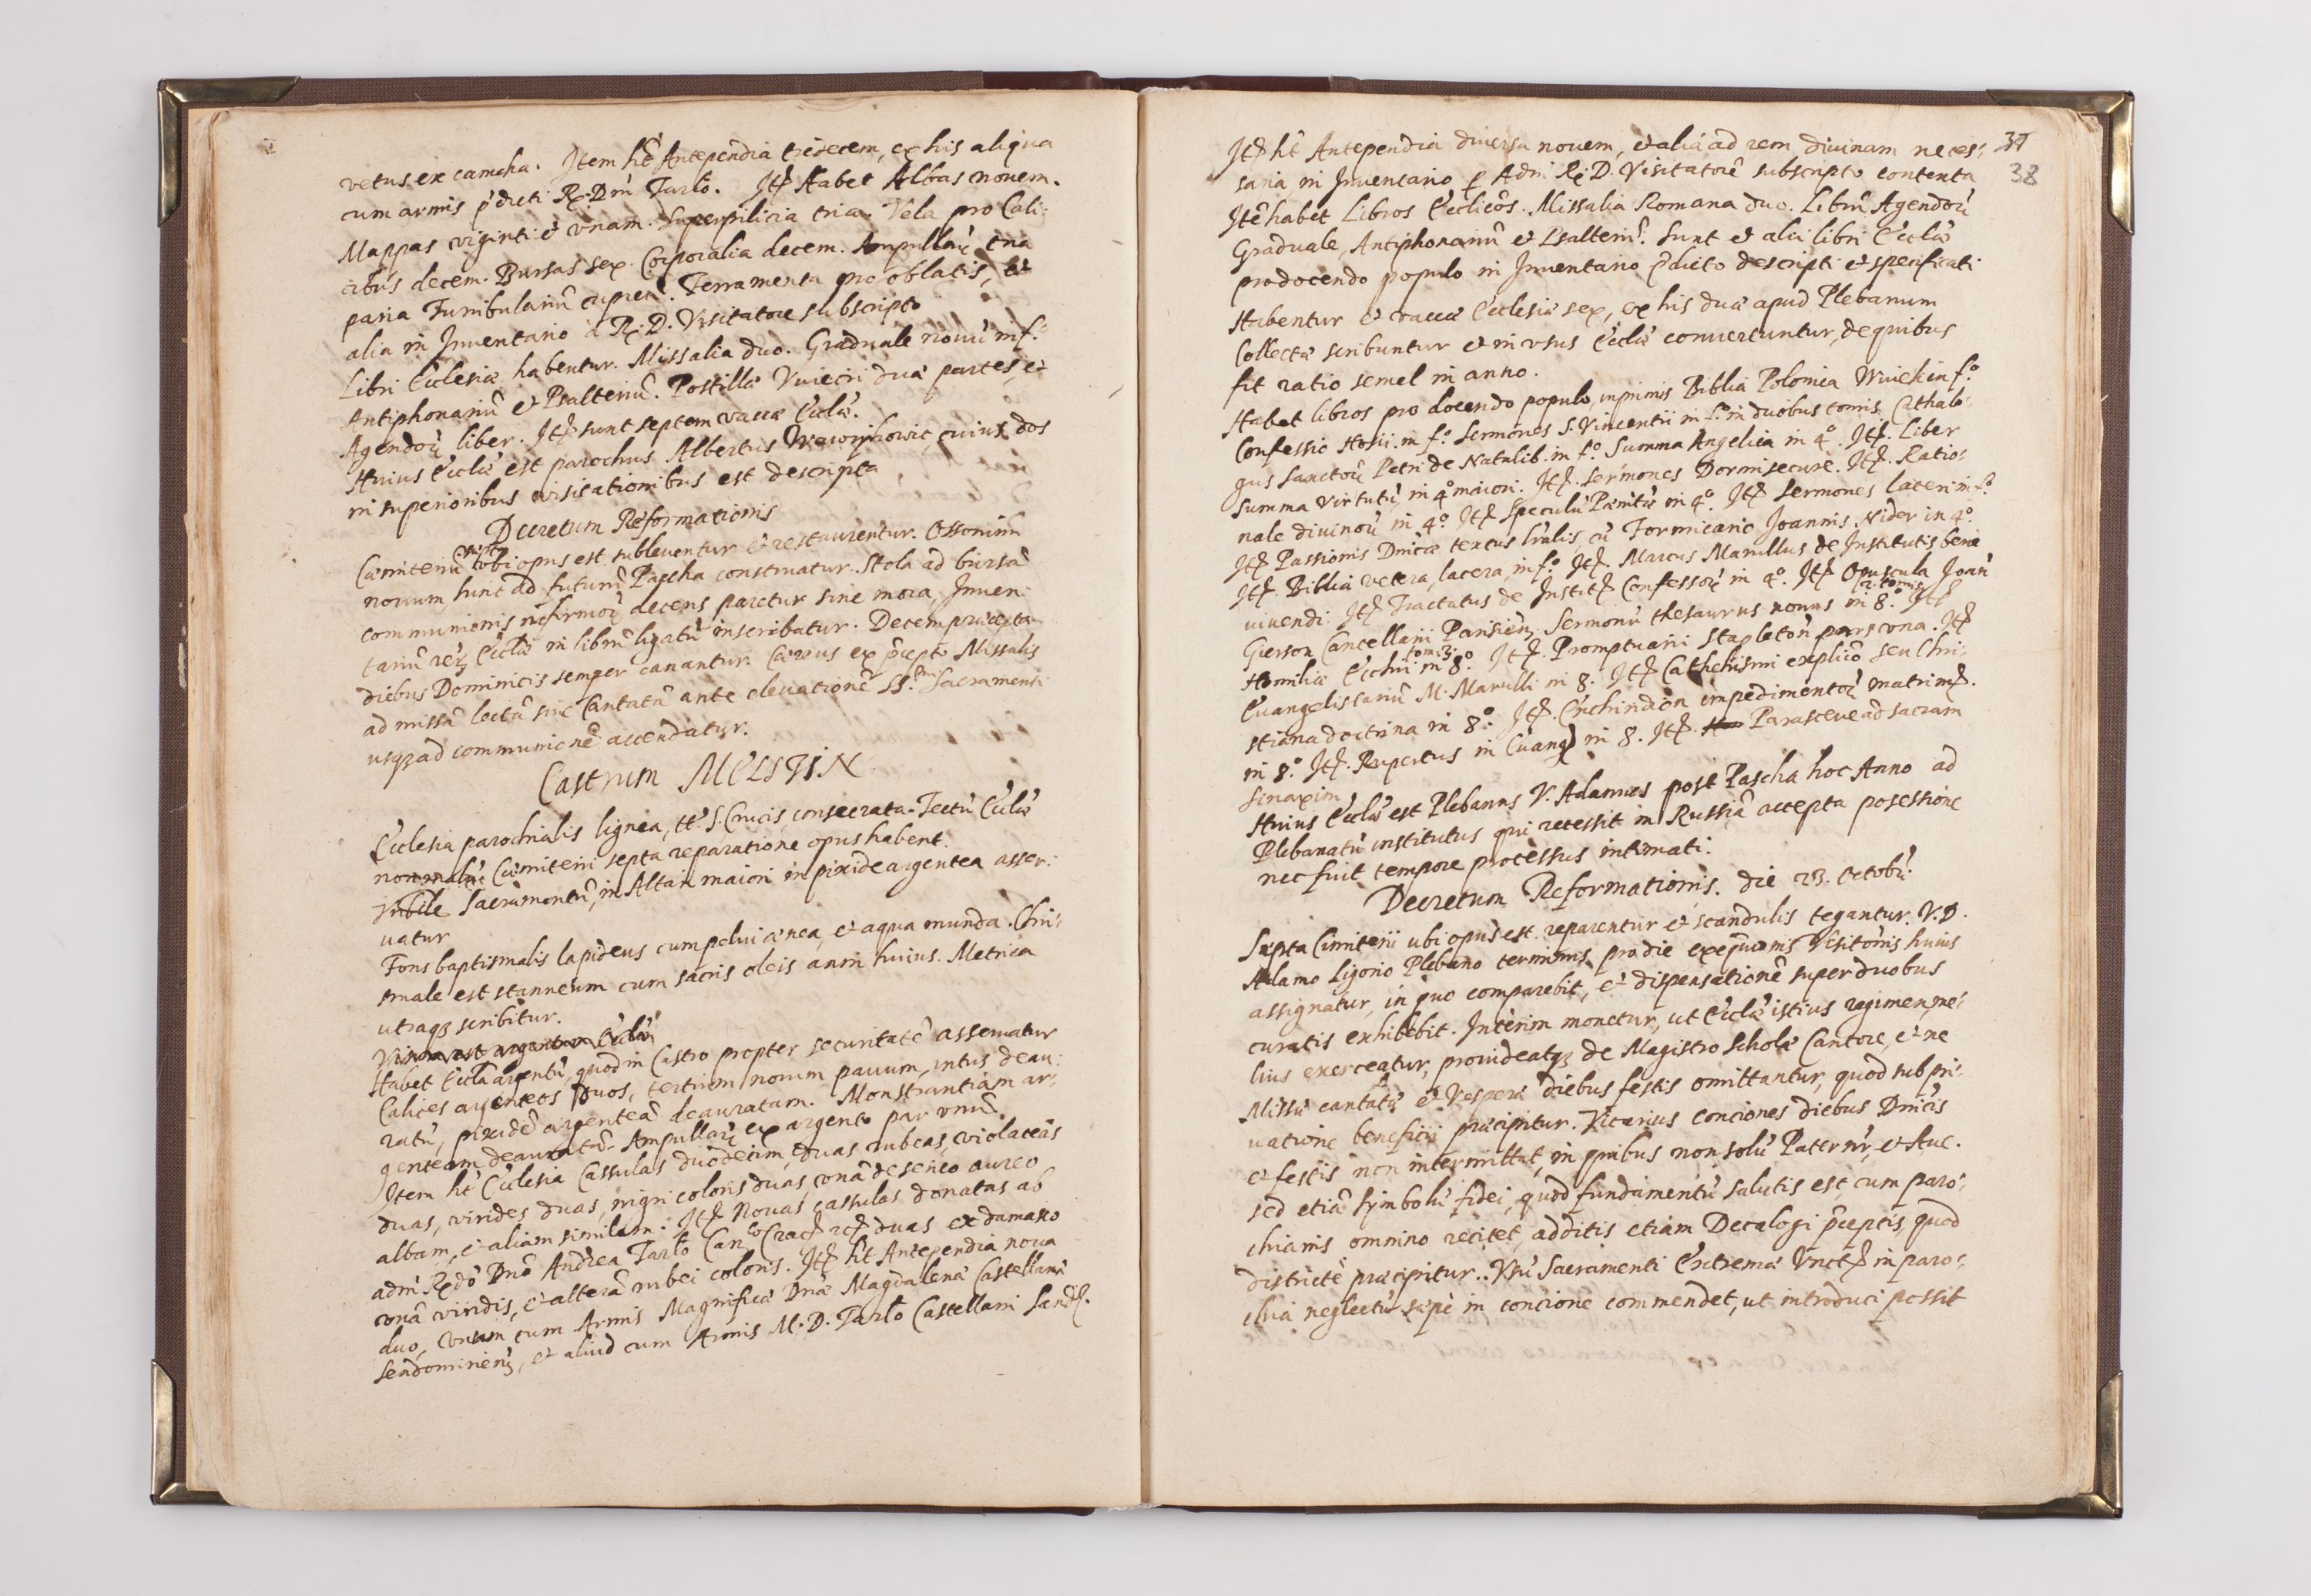 vetus ex camcha. Item hĉt Antependia tredecem, ex his aliqua
cum armis p̃dicti R. Dñi Tarło. Itẽ Habet Albas novem.
Mappas viginti et vnam. Superpilicia tria. Vela pro Cali:
cibus decem. Bursas sex. Corporalia decem. Ampullarũ tria
paria Turribulariũ cupreũ. Ferramenta pro oblatis, et
alia in Inuentario à R. D. Visitatore subscripto
Libri Ecclesiæ habentur. Missalia duo. Graduale nouũ in f.º
Antiphonariũ et Psalteriũ. Postillæ Vuieci duæ partes, et
Agendorũ liber. Itẽ sunt septem vaccæ Ecclæ.
Huius Ecclæ est parochus Albertus cuius dos
in superioribus visitationibus est descripta
Decretum Reformationis
Cæmiteriũ septa vbi opus est subleuentur et restaurentur. Ossoriũ
nouum hinc ad futurũ Pascha construatur. Stola ad bursã
communionis infirmorũ decens paretur sine mora, Inuen:
tariũ rerũ Ecclæ in librũ ligatũ inscribatur. Decem præcepta
diebus Dominicis semper canantur. Cereus ex p̃cepto Missalis
ad missã lectã siue Cantatã ante eleuationẽ SS.mi Sacramenti
usq; ad communionẽ accendatur.
Castrum MELSTIN
Ecclesia parochialis lignea, tt. S. Crucis consecrata. Tectũ Ecclæ
nonnullũ Cæmiterii septa reparatione opus habent.
Sacramentũ, in Altari maiori in pixide argentea asser:
uatur
Fons baptismalis lapideus cum pelui ænea, et aqua munda. Chri:
smale est stanneum cum sacris oleis anni huius. Metrica
utraq; scribitur.
Habet Eccla argentũ, quod in Castro propter securitatẽ asseruatur
Calices argenteos duos, tertium nouum paruum, intus deau:
ratũ, pixidẽ argenteã deauratam. Monstrantiam ar:
genteam deauratã. Ampullarũ ex argento par vnũ.
Item hĉt Ecclesia Cassulas duodecim, duas rubeas, violaceas
duas, virides duas, nigri coloris duas, vnã de serico aureo
albam, et aliam similem: Itẽ Nouas cassulas donatas ab
adm Rẽdo Dño Andrea Tarło Canco Crac. duas ex damasco
vnã viridis, et alterã rubei coloris. Itẽ hĉt Antependia noua
duo, vnum cum Armis Magnificæ Dñæ Magdalenæ Castellanæ
Sendomirieñ, et aliud cum Armis M. D. Tarło Castellani Sand.
37
38
Itẽ hĉt Antependia diuersa nouem, et alia ad rem diuinam neces:
saria in Inuentario p Adm R. D. Visitatorẽ subscripto contenta
Itẽ habet Libros Ecclicos. Missalia Romana duo. Librũ Agendorũ
Graduale, Antiphonariũ et Psalteriũ. Sunt et alii libri Ecclæ
pro docendo populo in Inuentario p̃dicto descripti et specificati
Habentur et vaccæ Ecclesiæ sex, ex his duæ apud Plebanum
Collectæ scribuntur et in vsus Ecclæ conuertuntur, de quibus
fit ratio semel in anno.
Habet libros pro docendo populo, inprimis Biblia Polonica Wuiek in f.º
Confessio Hosii in f.º Sermones S. Vincentii in f.º in duobus tomis. Cathalo:
gus Sanctorũ Petri de Natalib. in f.º Summa Angelica in 4.º Itẽ. Liber
Summa Virtutũ in 4º maiori. Itẽ. Sermones Dormi secure. Itẽ. Ratio:
nale diuinorũ in 4.º Itẽ Speculũ in 4.º Itẽ Sermones lateri in f.º
Itẽ Passionis Dñicæ textus lralis cũ Formicario Joannis Nider in 4.º
Itẽ. Biblia vetera, lacera, in f.º Itẽ. Marcus Marullus de Institutis bene
viuendi. Itẽ Tractatus de Instit Confessorũ in 4.º Itẽ Opuscula Joañ
Gierson Cancellarii Parisieñ. Sermonũ thesaurus nouus 2. tomis in 8.º Itẽ
Homiliæ Ecchii tom. 3. in 8.º Itẽ. Promptuarii Stapletoñ pars vna. Itẽ
Euangelistariũ M. Marulli in 8. Itẽ Cathehismi explicõ seu Chri:
stiana doctrina in 8.º Itẽ. Enchiridion impedimentorũ matrim.
in 8.º Itẽ. Rupertus in Euang in 8. Itẽ. Parasceue ad sacram
Sinaxim
Huius Ecclæ est Plebanus V. Adamus post Pascha hoc Anno ad
Plebanatũ institutus qui recessit in Russiã accepta posessione
nec fuit tempore processus intimati.
Decretum Reformationis. die 23. Octobr.
Septa Cimiterii ubi opus est reparentur et scandulis tegantur. V. D.
Adamo Ligorio Plebano terminus pro die exequõnis Visitõnis huius
assignatur, in quo comparebit, et dispensationẽ super duobus
curatis exhibebit. Interim monetur, ut Ecclæ istius regimen me:
lius exerceatur, prouideatq; de Magistro Scholæ Cantore, et ne
Missæ cantatæ et Vesperæ diebus festis omittantur, quod sub pri:
uatione beneficii præcipitur. Vicarius conciones diebus Dñicis
et festis non intermittat, in quibus non solũ Pater nr̃, et Aue.
sed etiã Symbolũ fidei, quod fundamentũ salutis est, cum paro:
chianis omnino recitet, additis etiam Decalogi p̃ceptis, quod
districtè præcipitur. Vsũ Sacramenti Extremæ Vnct in paro:
chia neglectũ sæpè in concione commendet, ut introduci possit